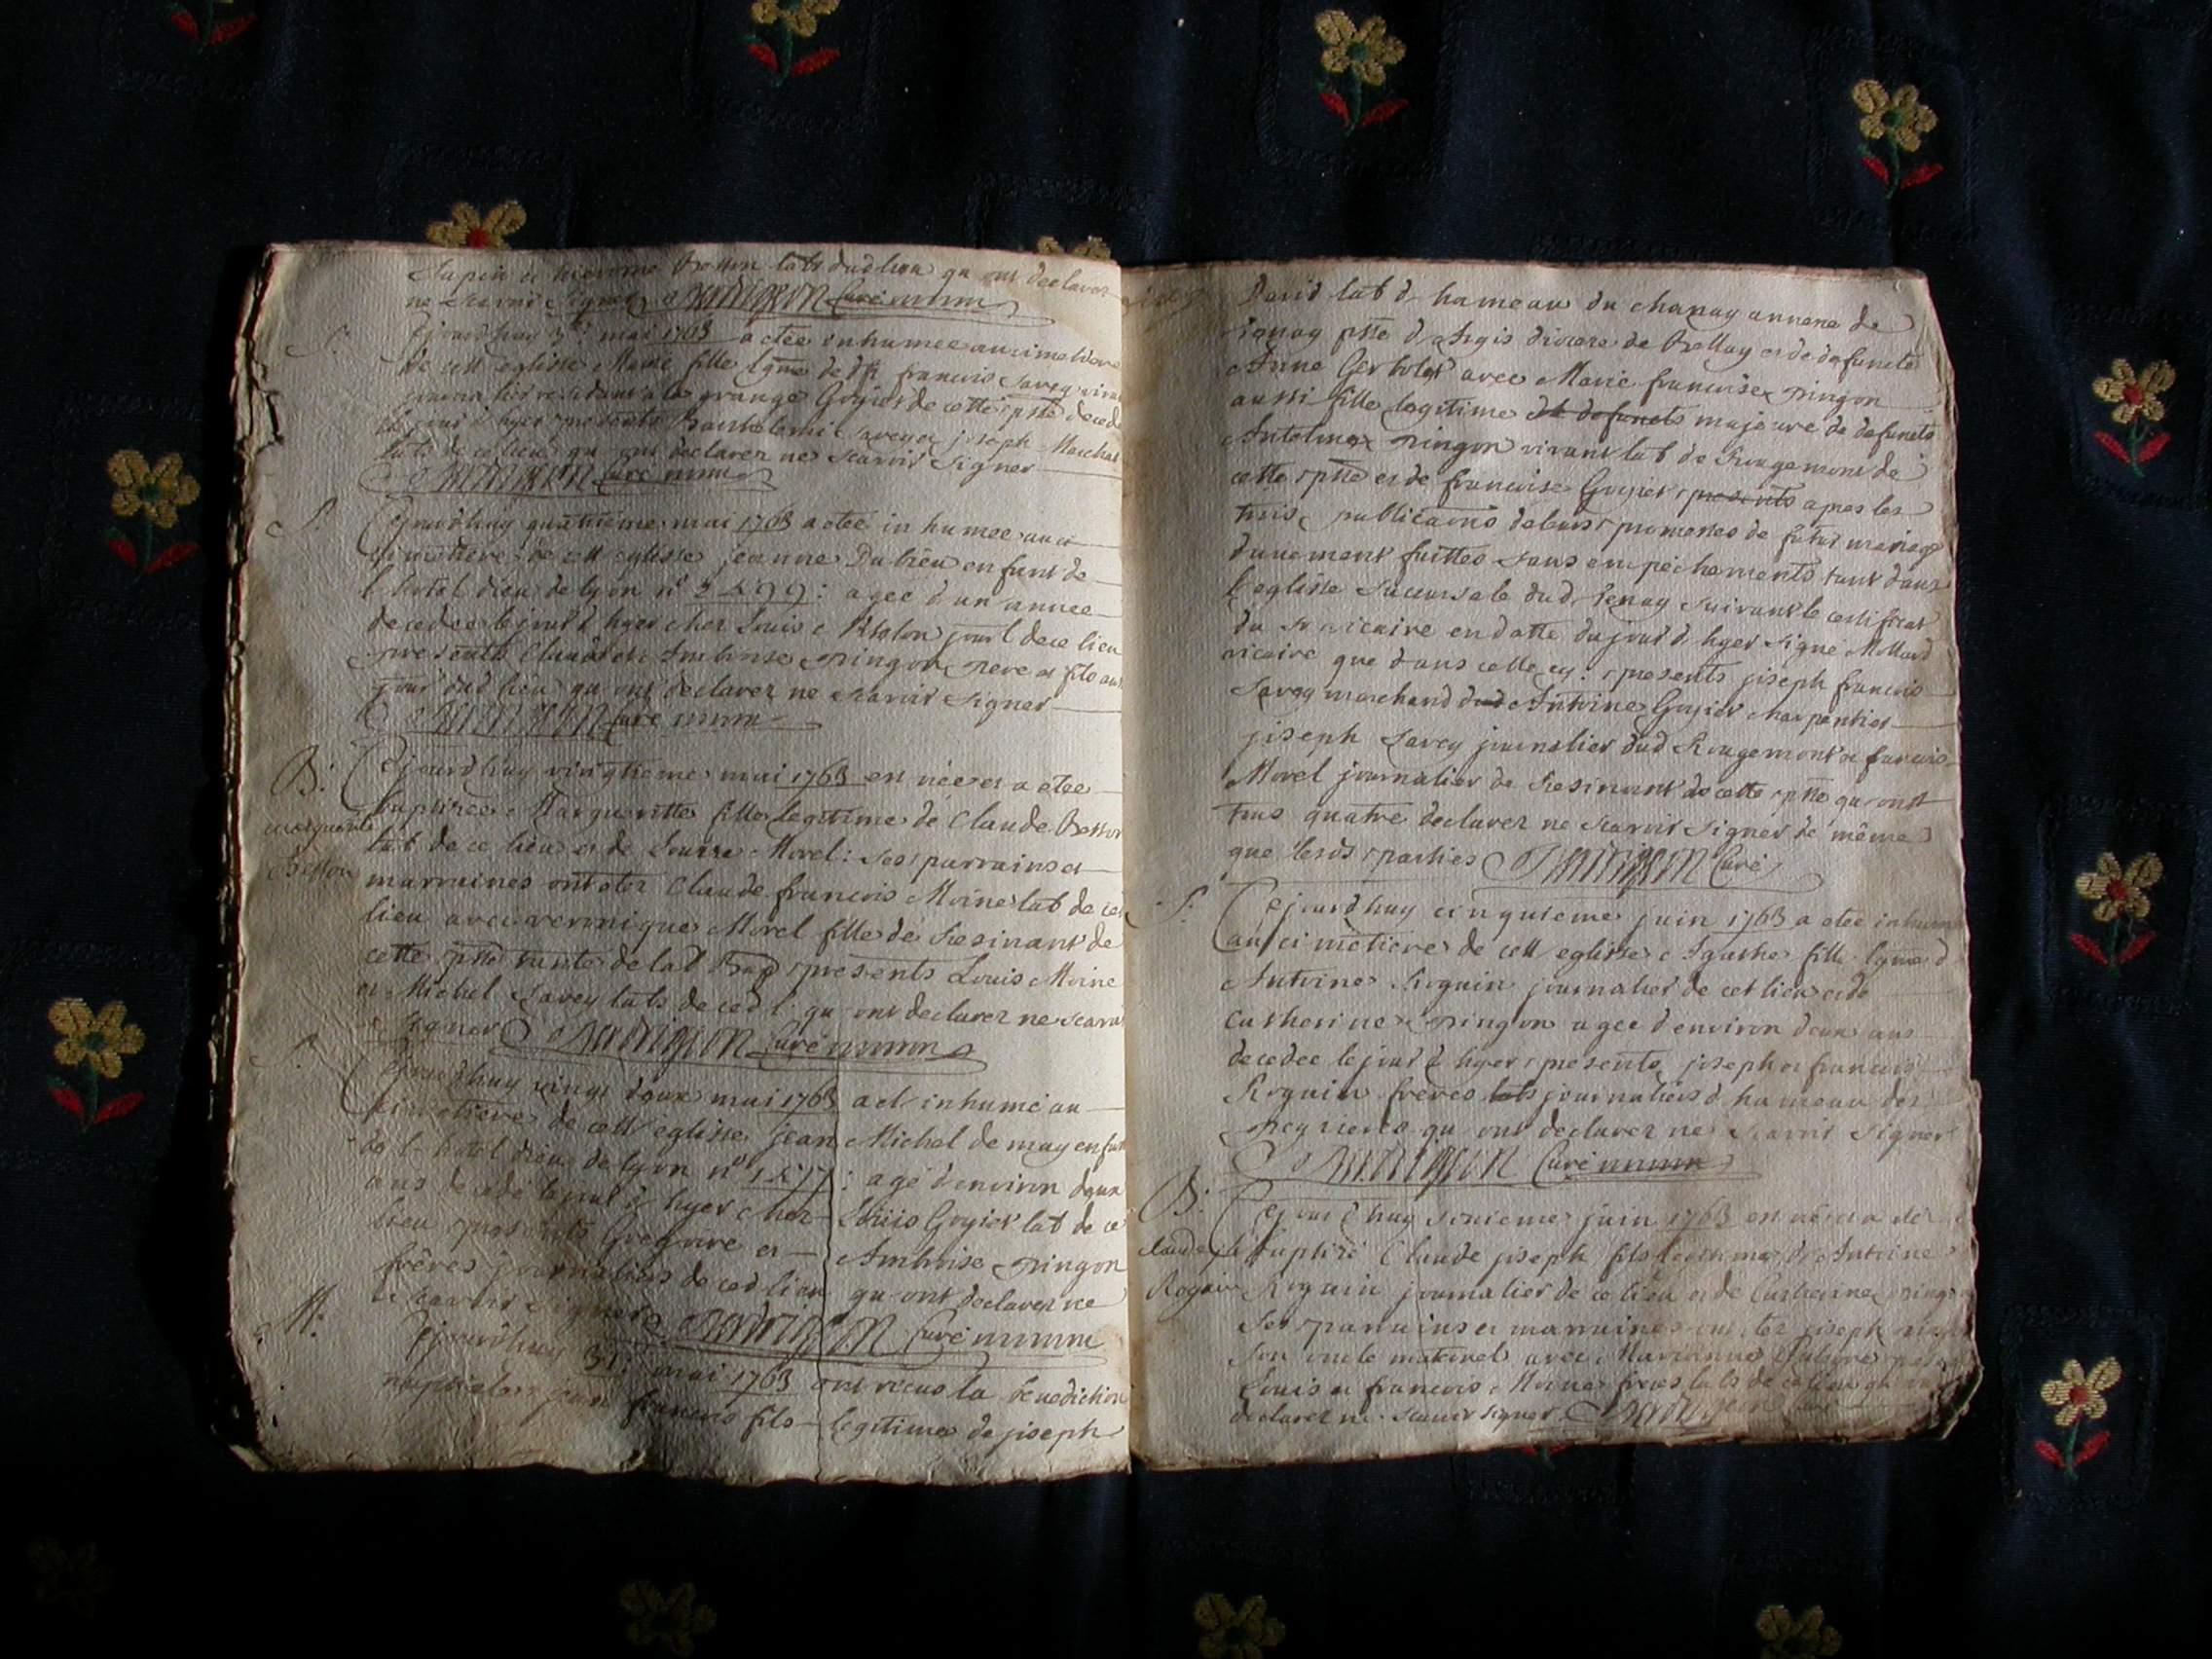 et hierome Besson labr dud lieu qui ont declarer
ne scavoir signer curé
Cejourdhuy 3e: mai 1763 a etee inhumee au cimetiere
de cett eglisse Marie fille lgme de françois Savey vivant
journalier a la grange Goyiet de cette psse decedee
le jour d hyer presents Barthelemi Savey et joseph Marchat
labs de ce lieu qui ont declarer ne scavoir signer
curé
S. Cejourdhuy quatrieme mai 1763 a etee in humee au ci
cimetiere de cett eglisse jeanne Dubieu enfant de
l hotel dieu de lyon n° agee d un annee
decedee le jour d hyer chez Louis jourl de ce lieu
presents Claude et Ambroise pingon pere et fils aussi
jour dud lieu qui ont declarer ne scavoir signer
curé
B: Cejourdhuy vingtieme mai 1763 est née et a etee
baptisee Margueritte fille legitime de Claude Besson
marguerite
lab de ce lieu et de Morel: ses parrains et
Besson
marraines ont eter Claude françois Moine lab de ce
lieu avec veronique Morel fille de Resinant de
cette psse tante de lad Bap presents Louis Moine
et Michel Savey labs de ced l: qui ont declarer ne scavoir
signer curé
S. Cejourdhuy vingt deux mai 1763 a et inhumé au
cimetiere de cett eglisse jean Michel de may enfant
de l hotel dieu de lyon n° 1577: agé d environ deux
ans decedé le jour d hyer chez Louis Goyiet lab de ce
lieu presents Gregoire et Ambroise pingon
frères journaliers de ced lieu qui ont declarer ne
scavoir signer curé
M: Cejourdhuy 31: mai 1763 ont recus la benediction
nuptiale jean françois fils legitime de joseph
David lab d hameau du chanay annexe de
psse d Argis diocese de Bellay et de defuncte
Anne avec Marie françoise pingon
aussi fille legitime de defuncts majeure de defuncts
Antelme pingon vivant lab de Rougemont de
cette psse et de françoise Goyiet presents apres les
trois publications de leurs promesses de futur mariage
duuement faittes sans empechements tant dans
l eglisse succursale dud Tenay suivant le certificat
du Sr vicaire en datte du jour d hyer signé Mollard
vicaire que dans celle cy: presents joseph françois
Savey marchand dud Antoine Goyiet charpentier
joseph Savey journalier dud Rougemont et françois
Morel journalier de Resinant de cette psse qui ont
tous quatre declarer ne scavoir signer de même
que lesds parties curé
S: Cejourdhuy cinquieme juin 1763 a etee inhumee
au cimetiere de cett eglisse Agathe fille lgme d
Antoine Roguin journalier de cet lieu et de
Catherine pingon agee d environ deux ans
decedee le jour d hyer presents joseph et françois
Roguin frères labs journaliers d hameau des
qui ont declarer ne scavoir signer
curé
B: Cejourdhuy juin 1763 est né et a eter
baptisé Claude joseph fils legitime d Antoine
Roguin Roguin journalier de ce lieu et de Catherine pingon
ses parrains et marraines ont eter joseph
son oncle maternel avec Marianne
Louis et françois Moine freres labs de ce lieu qui ont
declarer ne scavoir signer